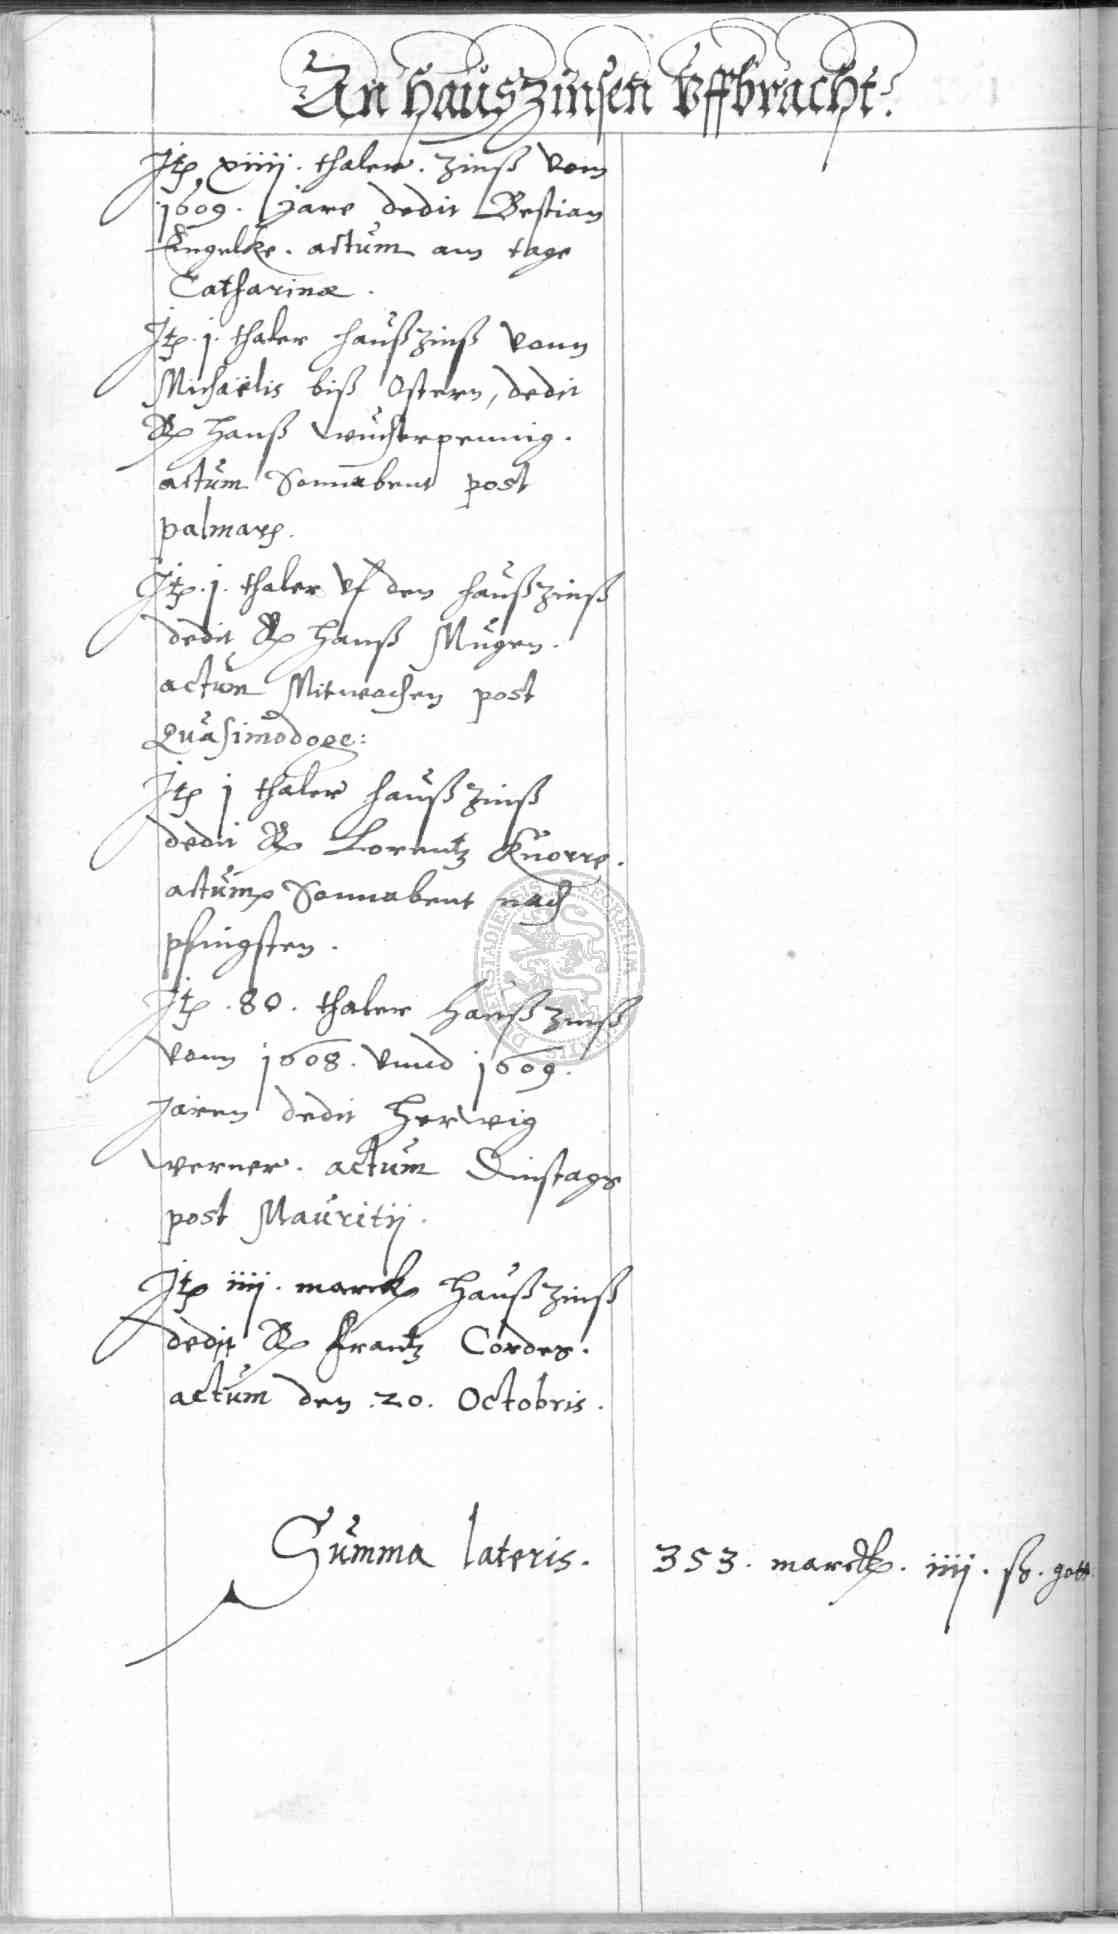 An Haußzinsen Vffbracht.
Itē xiiij. thaler. zinß vom
1609. Jare dedit Bestian
Engelke. actum am tage
Catharinæ.
Itē. j. thaler haußzinß vonn
Michaëlis biß Ostern, dedit
R hanß wucherpennig.
actum Sonnabent post
palmarȩ.
Itē. j. thaler vf den haußzinß
dedit R hanß Mugen.
actum Mitwochen post
Quasimodoge:
Itē j thaler haußzinß
dedit R Lorentz Knorrē.
actum Sonnabent nach
pfingsten.
Itē. 80. thaler haußzinß
vonn 1608. vnnd 1609.
Jaren dedit Herwig
werner. actum Dinstags
post Mauritij.
Itē iiij. marck haußzinß
dedit R Frantz Cordes.
actum den .20. Octobris.
Summa lateris. 353. marck. iiij. ß. gott: